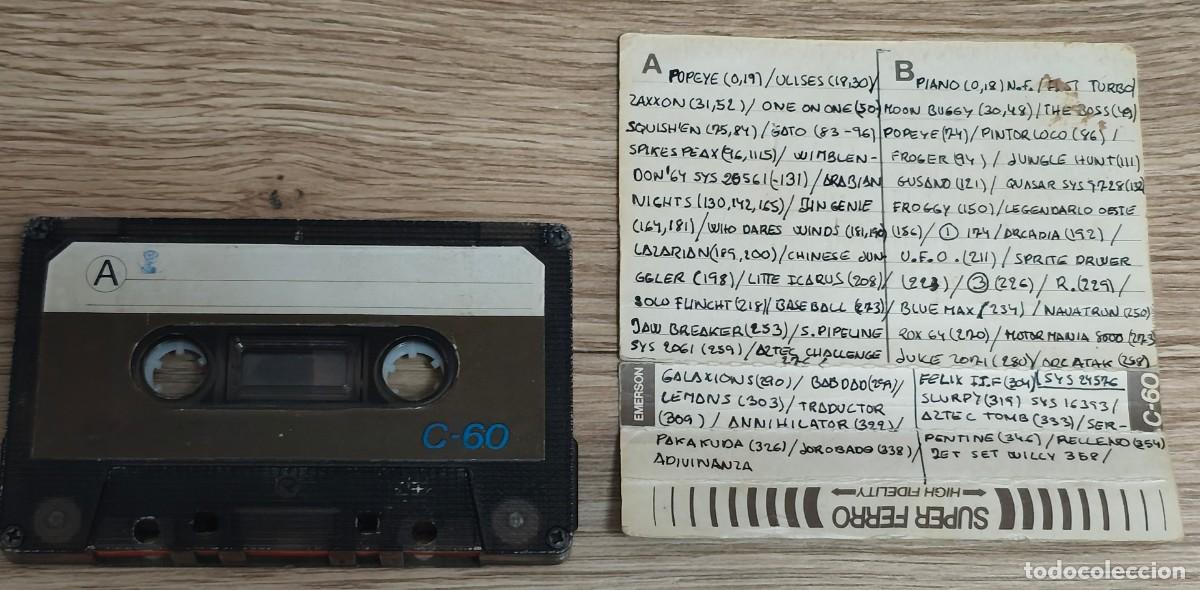 A
C-60
A
POPEYE (0,19) / ULISES (18,30) /
ZAXXON (31,52) / ONE ON ONE (50)
SQUISH'EN (75,84) / GATO (83-96)
SPIKES PEAX (96,115) / WIMBLEN-
DON'64 SYS 20561 (-131) / ARABIAN
NIGHTS (130,142,165) / JIN GENIE
(164,181) / WHO DARES WINDS (181,190)
LAZARIAN (189,200) / CHINESE JUN-
GGLER (198) / LITTE ICARUS (208) /
SOLO FLINCHT (218) / BASEBALL (273) /
JAW BREAKER (253) / S. PIPELINE
SYS 2061 (259) / AZTEC CHALLENGE
GALAXIONS (290) / BAB DAD (299) /
LEMANS (303) / TRADUCTOR
(309) / ANNIHILATOR (322) /
PAKAKUDA (326) / JOROBADO (338) /
ADIVINANZA
B
PIANO (0,18) N.f. / TURBO
MOON BUGGY (30,48) / THE BOSS (49)
POPEYE (74) / PINTOR LOCO (86) /
FROGER (94) / JUNGLE HUNT (111)
GUSANO (121) / QUASAR SYS 9728 (132)
FROGGY (150) / LEGENDARIO OESTE
(186) / ① 174 / ARCADIA (192) /
U.F.O. (211) / SPRITE DRIVER
(223) / ③ (226) / R. (229) /
BLUE MAX / (234) / NAVATRON (250)
ROX 64 (270) / MOTOR MANIA 8000 (273)
JUICE 20171 (280) / ORC ATAK (298)
FELIX II.F (304) (SYS 24576
SLURPY (319) SYS 16393 /
AZTEC TOMB (333) / SER-
PENTINE (346) / RELLENO (354)
JET SET WILLY 358 /
EMERSON
C-60
SUPER FERRO
HIGH FIDELITY
todocoleccion